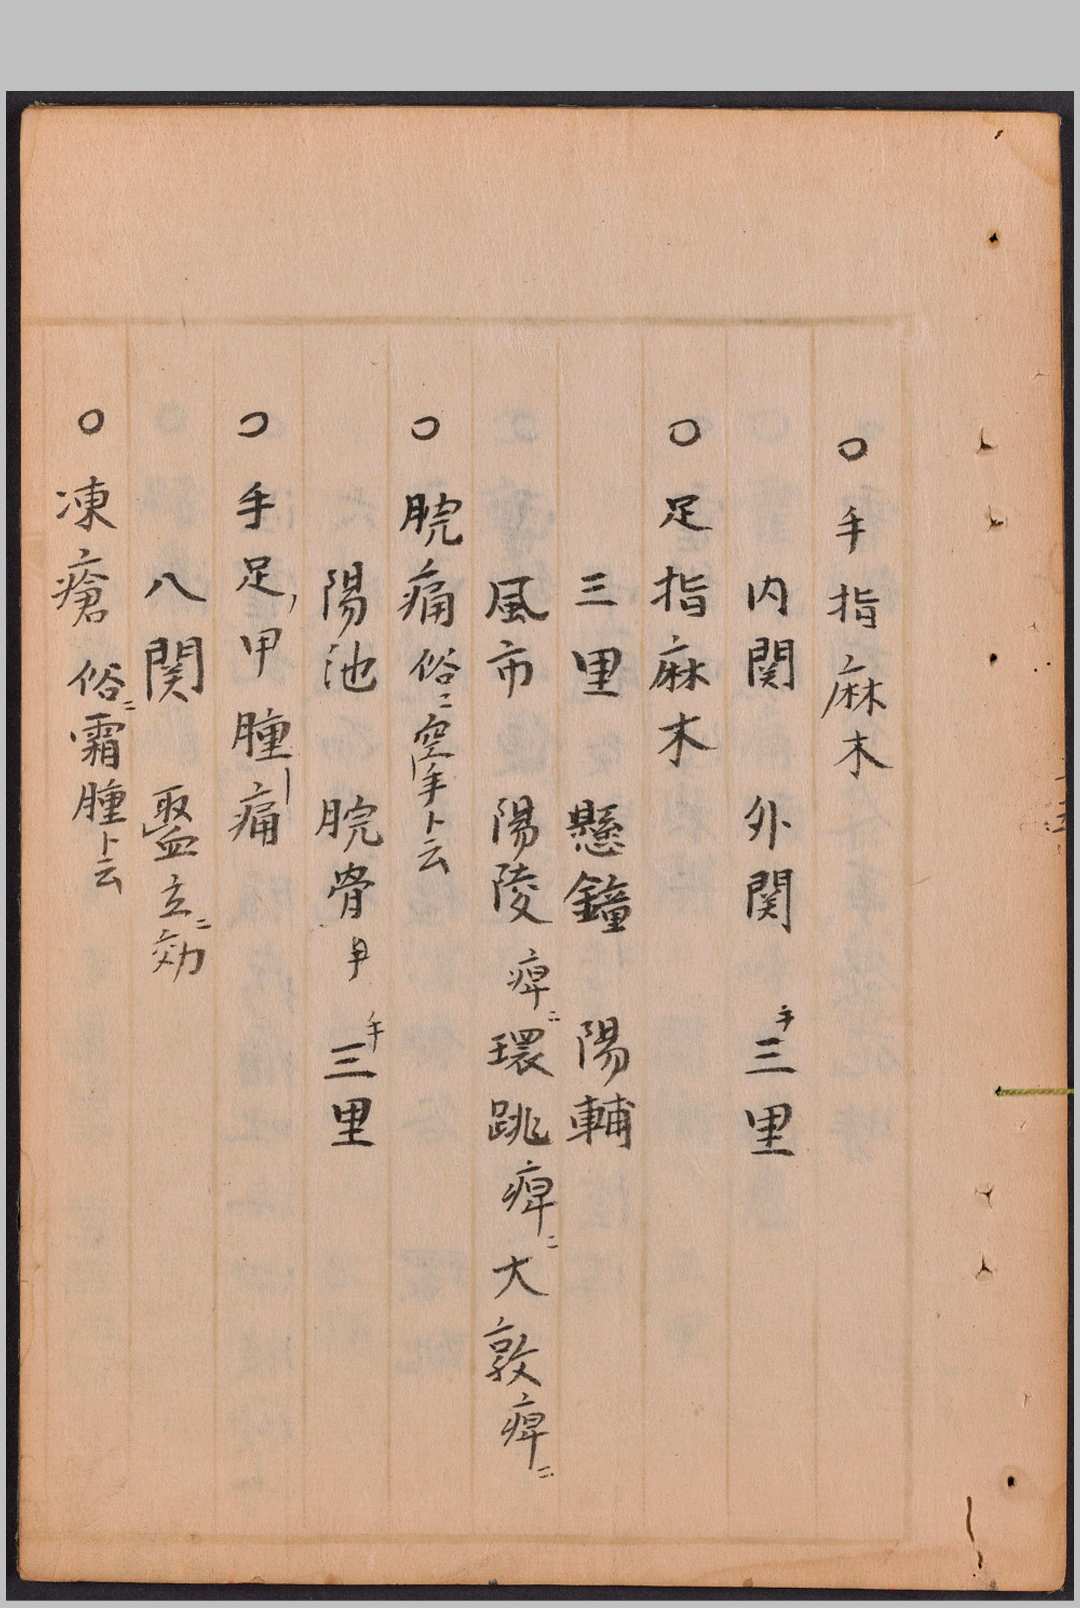 ○手指麻木
内関 外関 手三里
○足指麻木
三里 懸鐘 陽輔
風市 陽陵痺ニ環跳痺ニ大敦痺ニ
○腕痛俗ニ空手ト云
陽池 腕骨 手三里
○手足ノ甲腫痛
八関 立ニ効
○凍瘡 俗ニ霜腫ト云